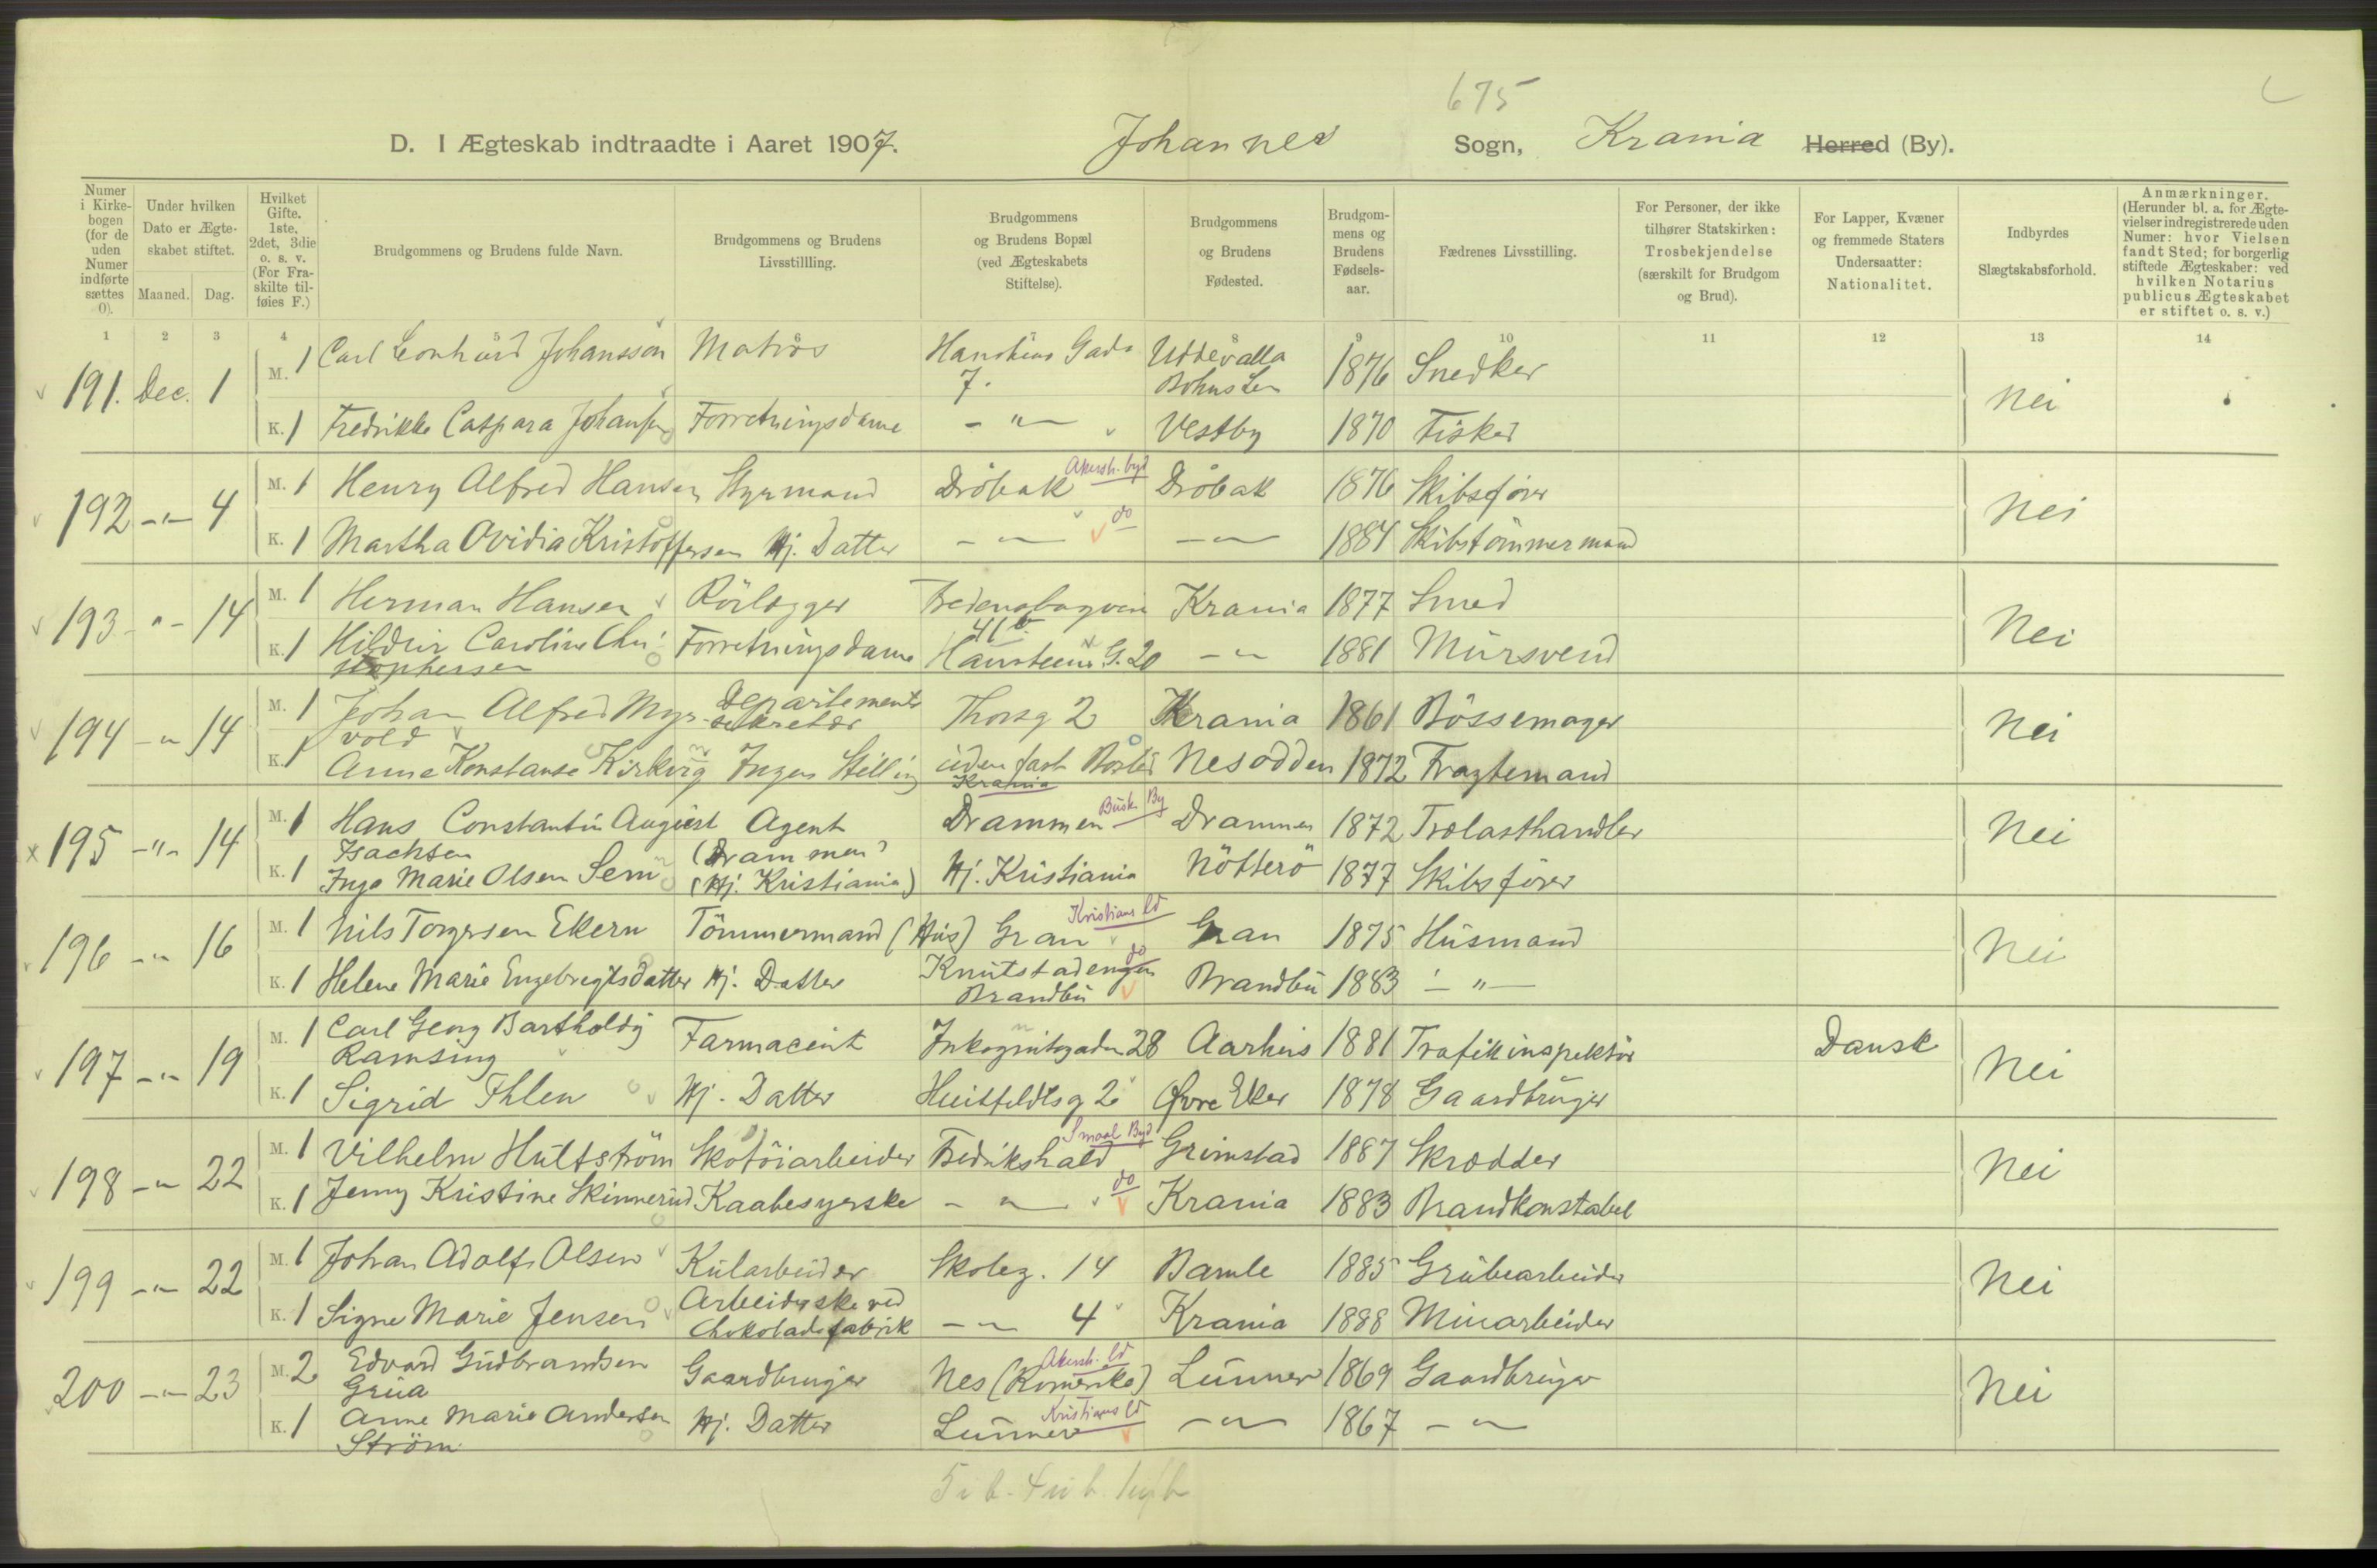 675
D. I Ægteskab indtraadte i Aaret 1907. Johannes Sogn, Krania Herred (By).
Numer i Kirkebogen (for de uden Numer indførte sættes 0).
Under hvilken Dato er Ægteskabet stiftet.
Maaned. Dag.
Hvilket Gifte. 1ste, 2det, 3die o. s. v. (For Fraskilte tilføies F.)
Brudgommens og Brudens fulde Navn.
Brudgommens og Brudens Livsstillling.
Brudgommens og Brudens Bopæl (ved Ægteskabets Stiftelse).
Brudgommens og Brudens Fødested.
Brudgommens og Brudens Fødselsaar.
Fædrenes Livsstilling.
For Personer, der ikke tilhører Statskirken: Trosbekjendelse (særskilt for Brudgom og Brud).
For Lapper, Kvæner og fremmede Staters Undersaatter: Nationalitet.
Indbyrdes Slægtskabsforhold.
Anmærkninger. (Herunder bl. a. for Ægtevielser indregistrerede uden Numer: hvor Vielsen fandt Sted; for borgerlig stiftede Ægteskaber: ved hvilken Notarius publicus Ægteskabet er stiftet o. s. v.)
1 2 3 4 5 8 9 10 11 12 13 14
191. Dec. 1 M. 1 Carl Leonhard Johansson Matros Hansteens Gade 7. Uddevalla Bohus Len 1876 Snedker Nei
K. 1 Fredrikke Caspara Johansen Forretningsdame - " - Vestby 1870 Fisker
192 - " - 4 M. 1 Henry Alfred Hansen Styrmand Dröbak Akersh. byd Dröbak 1876 Skibsfører Nei
K. 1 Martha Ovidia Kristoffersen Hj. Datter - " - do - " - 1884 Skibstömmermand
193 - " - 14 M. 1 Herman Hansen Rörlægger Fredensborgvein 41 b Krania 1877 Smed Nei
K. 1 Hildur Caroline Christophersen Forretningsdame Hansteens G. 20 - " - 1881 Mursvend
194 - " - 14 M. 1 Johan Alfred Myrvold Departementssekretær Thorsg 2 Krania 1861 Bössemager Nei
K. 1 Anne Konstanse Kirkvig Ingen Stilling uden fast Bosted Krania Nesodden 1872 Fragtemand
195 - " - 14 M. 1 Hans Constantin August Isachsen Agent (Drammen) Drammen Busk By Drammen 1872 Trælasthandler Nei
K. 1 Inga Marie Olsen Sem (Hj. Kristiania) Hj. Kristiania Nötterö 1877 Skibsfører
196 - " - 16 M. 1 Nils Torgersen Ekern Tömmermand (Hus) Gran Kristians ld Gran 1875 Husmand Nei
K. 1 Helene Marie Engebregtsdatter Hj. Datter Knutstadengen Brandbu do Brandbu 1883 - " -
197 - " - 19 M. 1 Carl Georg Bartholdy Ramsing Farmaceut Inkognitogaden 28 Aarhus 1881 Trafikinspektör Dansk Nei
K. 1 Sigrid Ihlen Hj. Datter Huitfeldtsg 2 Øvre Eker 1878 Gaardbruger
198 - " - 22 M. 1 Vilhelm Hultström Skotöiarbeider Fredrikshald Smaal Byd Grimstad 1887 Skrædder Nei
K. 1 Jenny Kristine Skinnerud Kaabesyerske - " - do Krania 1883 Brandkonstabel
199 - " - 22 M. 1 Johan Adolf Olsen Kularbeider Skoleg. 14 Bamle 1885 Grubearbeider Nei
K. 1 Signe Marie Jensen Arbeiderske ved Chokoladefabrik - " - 4 Krania 1888 Minearbeider
200 - " - 23 M. 2 Edvard Gudbrandsen Grua Gaardbruger Nes (Romerike) Akersh. ld Lunner 1869 Gaardbruger Nei
K. 1 Anne Marie Andersen Ström Hj. Datter Lunner Kristians ld - " - 1867 - " -